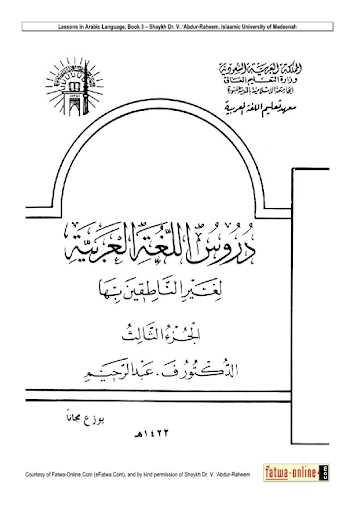 Lessons in Arabic Language, Book 3 – Shaykh Dr. V. 'Abdur-Raheem, Islaamic University of Madeenah
المملكة العربية السعودية
وزارة التعليم العالي
الجامعة الإسلامية بالمدينة المنورة
معهد تعليم اللغة العربية
دُرُوسُ اللُّغَةِ الْعَرَبِيَّةِ
لِغَيْرِ النَّاطِقِينَ بِهَا
الجُزْءُ الثَّالِثُ
الدُّكْتُور ف. عَبْدُ الرَّحِيْمِ
يوزع مجاناً
١٤٢٢هـ
Courtesy of Fatwa-Online.Com (eFatwa.Com), and by kind permission of Shaykh Dr. V. 'Abdur-Raheem
fatwa-online.com